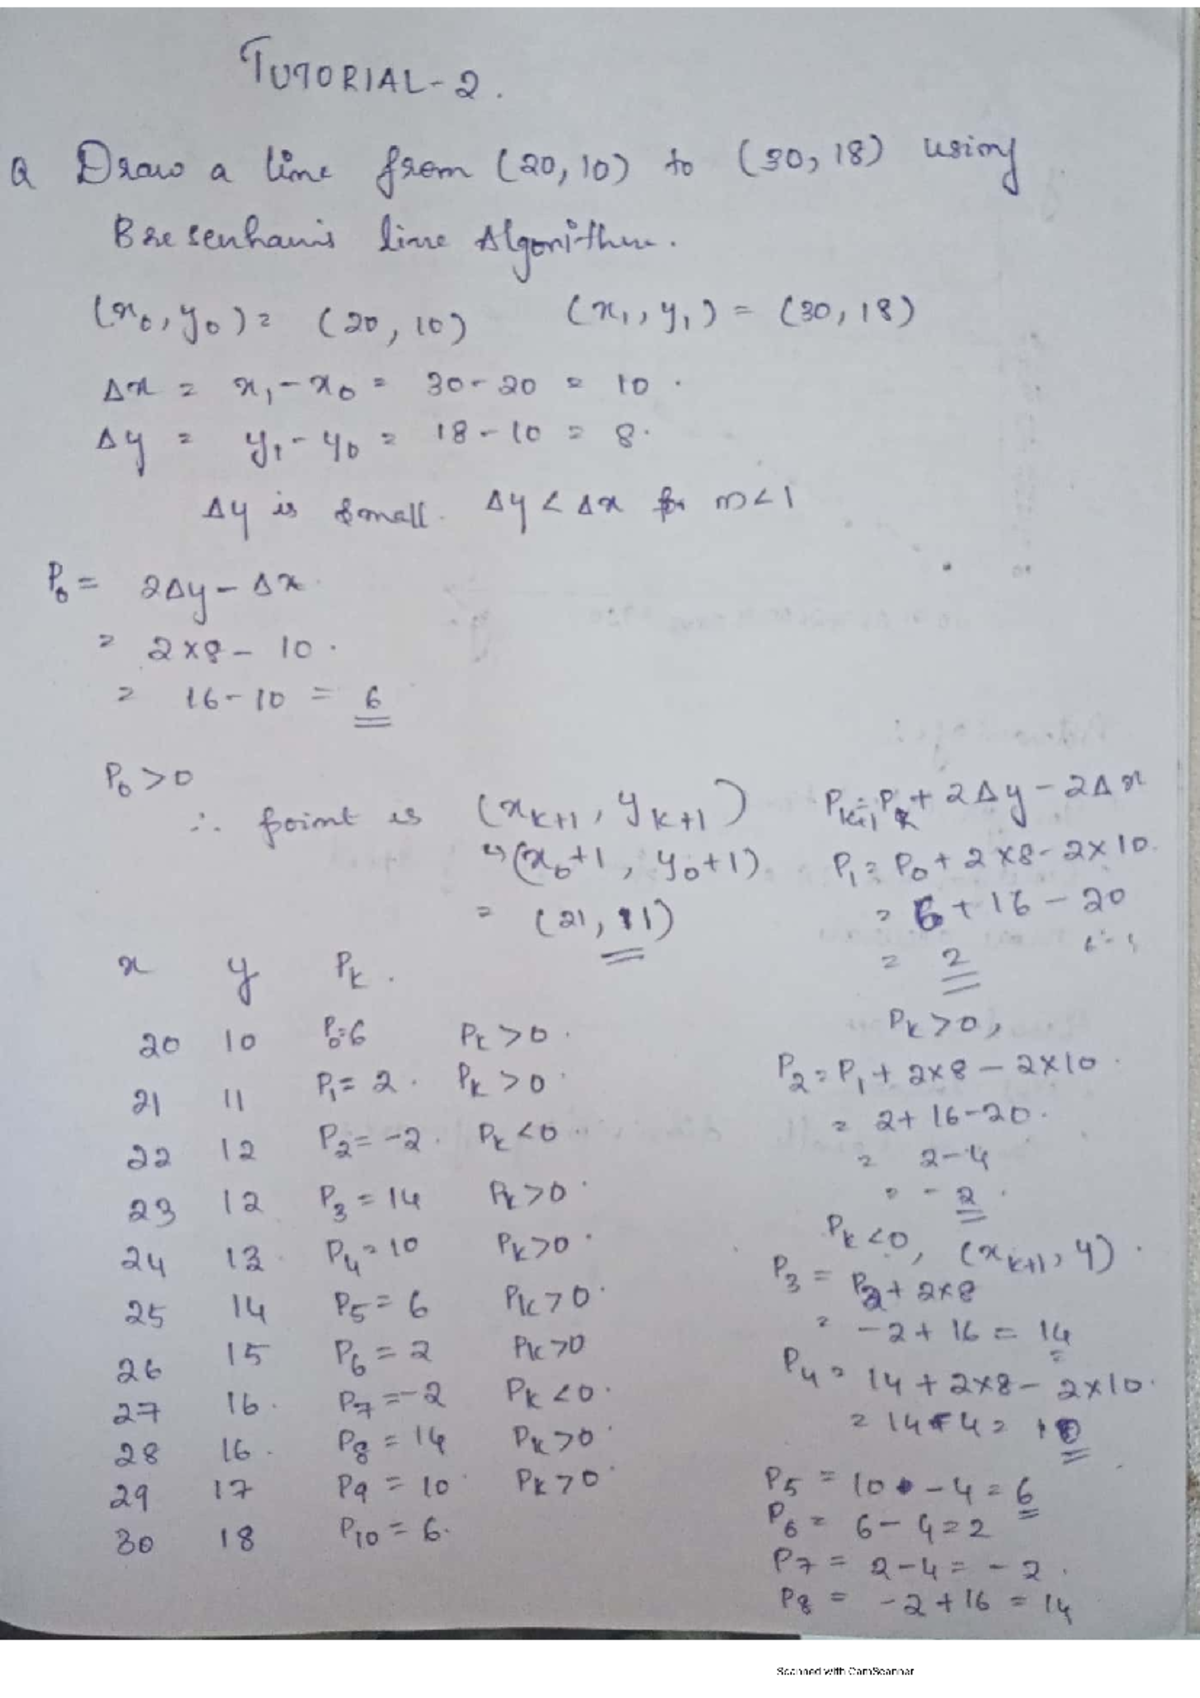 TUTORIAL-2.
Q Draw a line from (20,10) to (30,18) using
Bresenham's line Algorithm.
(x₀,y₀)= (20,10) (x₁,y₁) = (30,18)
Δx = x₁-x₀ = 30-20 = 10.
Δy = y₁-y₀ = 18-10 = 8.
Δy is small. Δy < Δx for m<1
P₀ = 2Δy - Δx.
= 2×8 - 10.
= 16-10 = 6
P₀ >0
∴ point is (xₖ₊₁, yₖ₊₁)
=(x₀+1, y₀+1)
= (21, 11)
Pₖ₊₁=Pₖ+2Δy-2Δx
P₁ = P₀+2×8-2×10.
= 6+16-20
= 2
Pₖ>0,
P₂=P₁+2×8-2×10.
= 2+16-20.
= 2-4
= -2.
Pₖ<0, (xₖ₊₁, y).
P₃ = P₂+2×8
= -2+16 = 14
P₄ = 14+2×8-2×10.
= 14-4= 10
P₅ = 10-4=6
P₆ = 6-4=2
P₇ = 2-4= -2.
P₈ = -2+16 = 14
x y Pₖ.
20 10 P₀=6 Pₖ>0.
21 11 P₁=2. Pₖ>0.
22 12 P₂=-2. Pₖ<0.
23 12 P₃=14 Pₖ>0.
24 13. P₄=10 Pₖ>0.
25 14 P₅=6 Pₖ>0.
26 15 P₆=2 Pₖ>0
27 16. P₇=-2 Pₖ<0.
28 16. P₈=14 Pₖ>0.
29 17 P9=10 Pₖ>0.
30 18 P₁₀=6.
Scanned with CamScanner